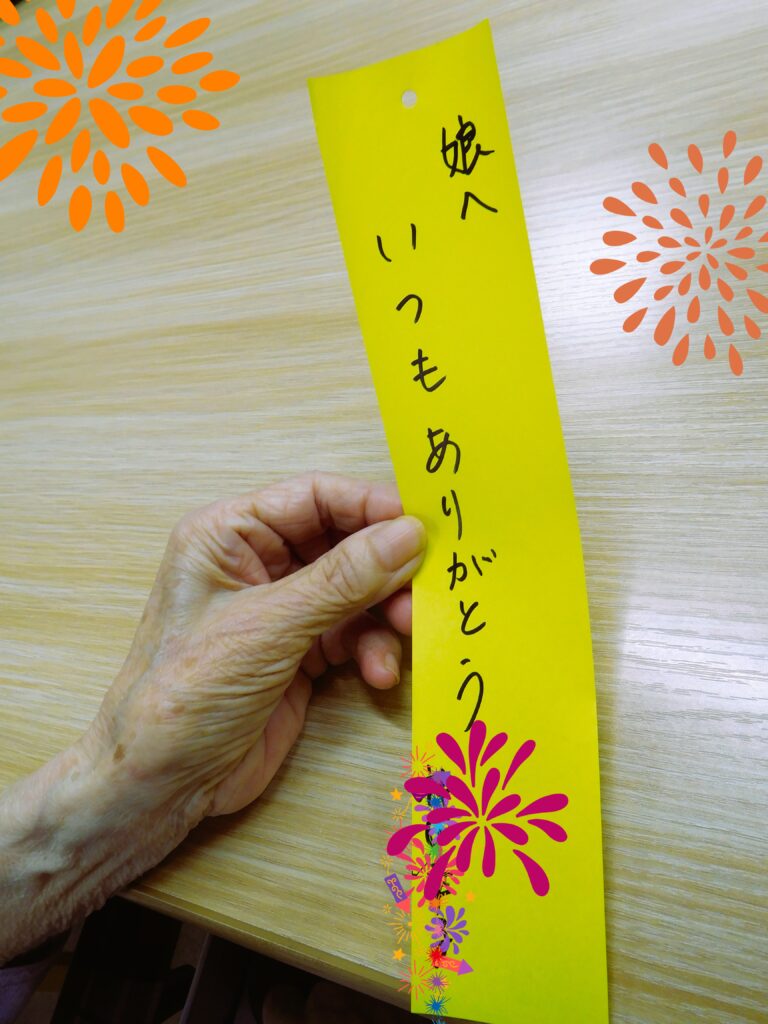 娘へ
いつもありがとう